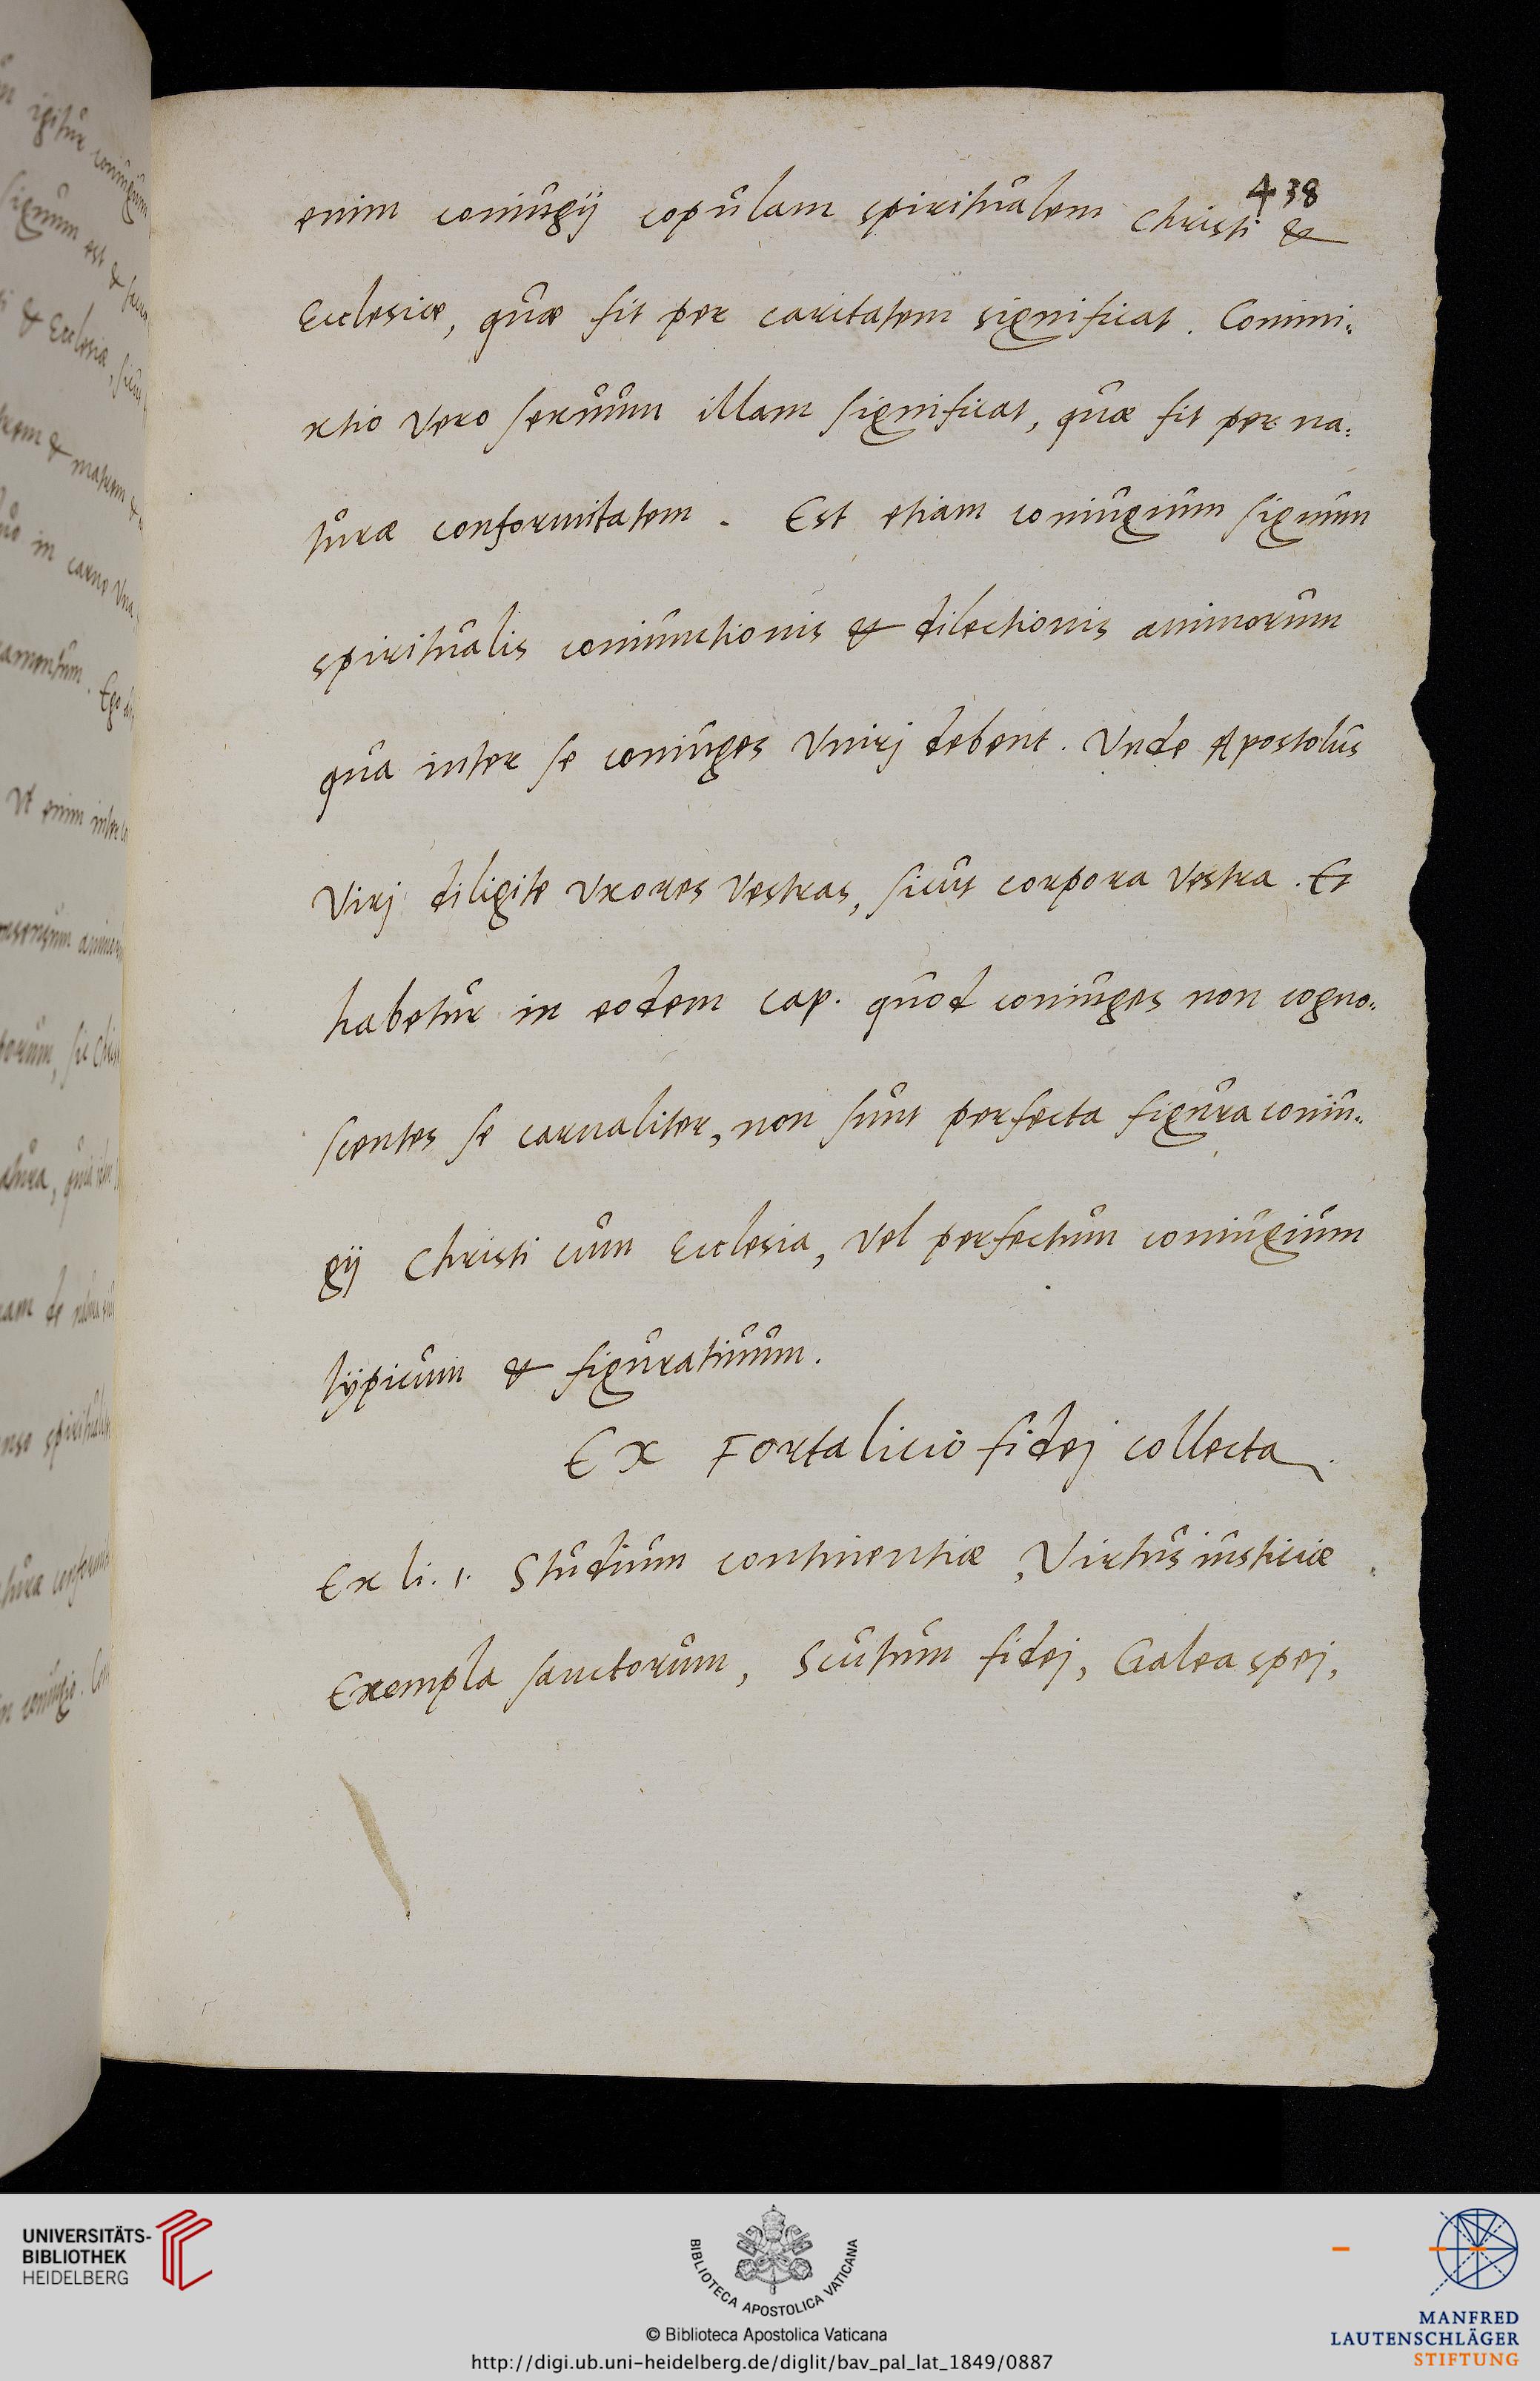 438
enim coniugij copulam spiritualem Christi &
Ecclesiæ, quæ fit per caritatem significat. Commi:
xtio vero sexuum illam significat, quæ fit per na:
turæ conformitatem. Est etiam coniugium signum
spiritualis coniunctionis & dilectionis animorum
qua inter se coniuges vnirj debent. Vnde Apostolus
Virj diligite vxores vestras, sicut corpora vestra. Et
habetur in eodem cap. quod coniuges non cogno:
scentes se carnaliter, non sunt perfecta figura coniu:
gij Christi cum Ecclesia, vel perfectum coniugium
typicum & figuratiuum.
Ex Fortalicio fidej collecta.
Ex li. 1. Studium continentiæ, Virtus iusticiæ
Exempla sanctorum, Scutum fidej, Galea spej,
UNIVERSITÄTS-
BIBLIOTHEK
HEIDELBERG
BIBLIOTECA APOSTOLICA VATICANA
© Biblioteca Apostolica Vaticana
http://digi.ub.uni-heidelberg.de/diglit/bav_pal_lat_1849/0887
MANFRED
LAUTENSCHLÄGER
STIFTUNG